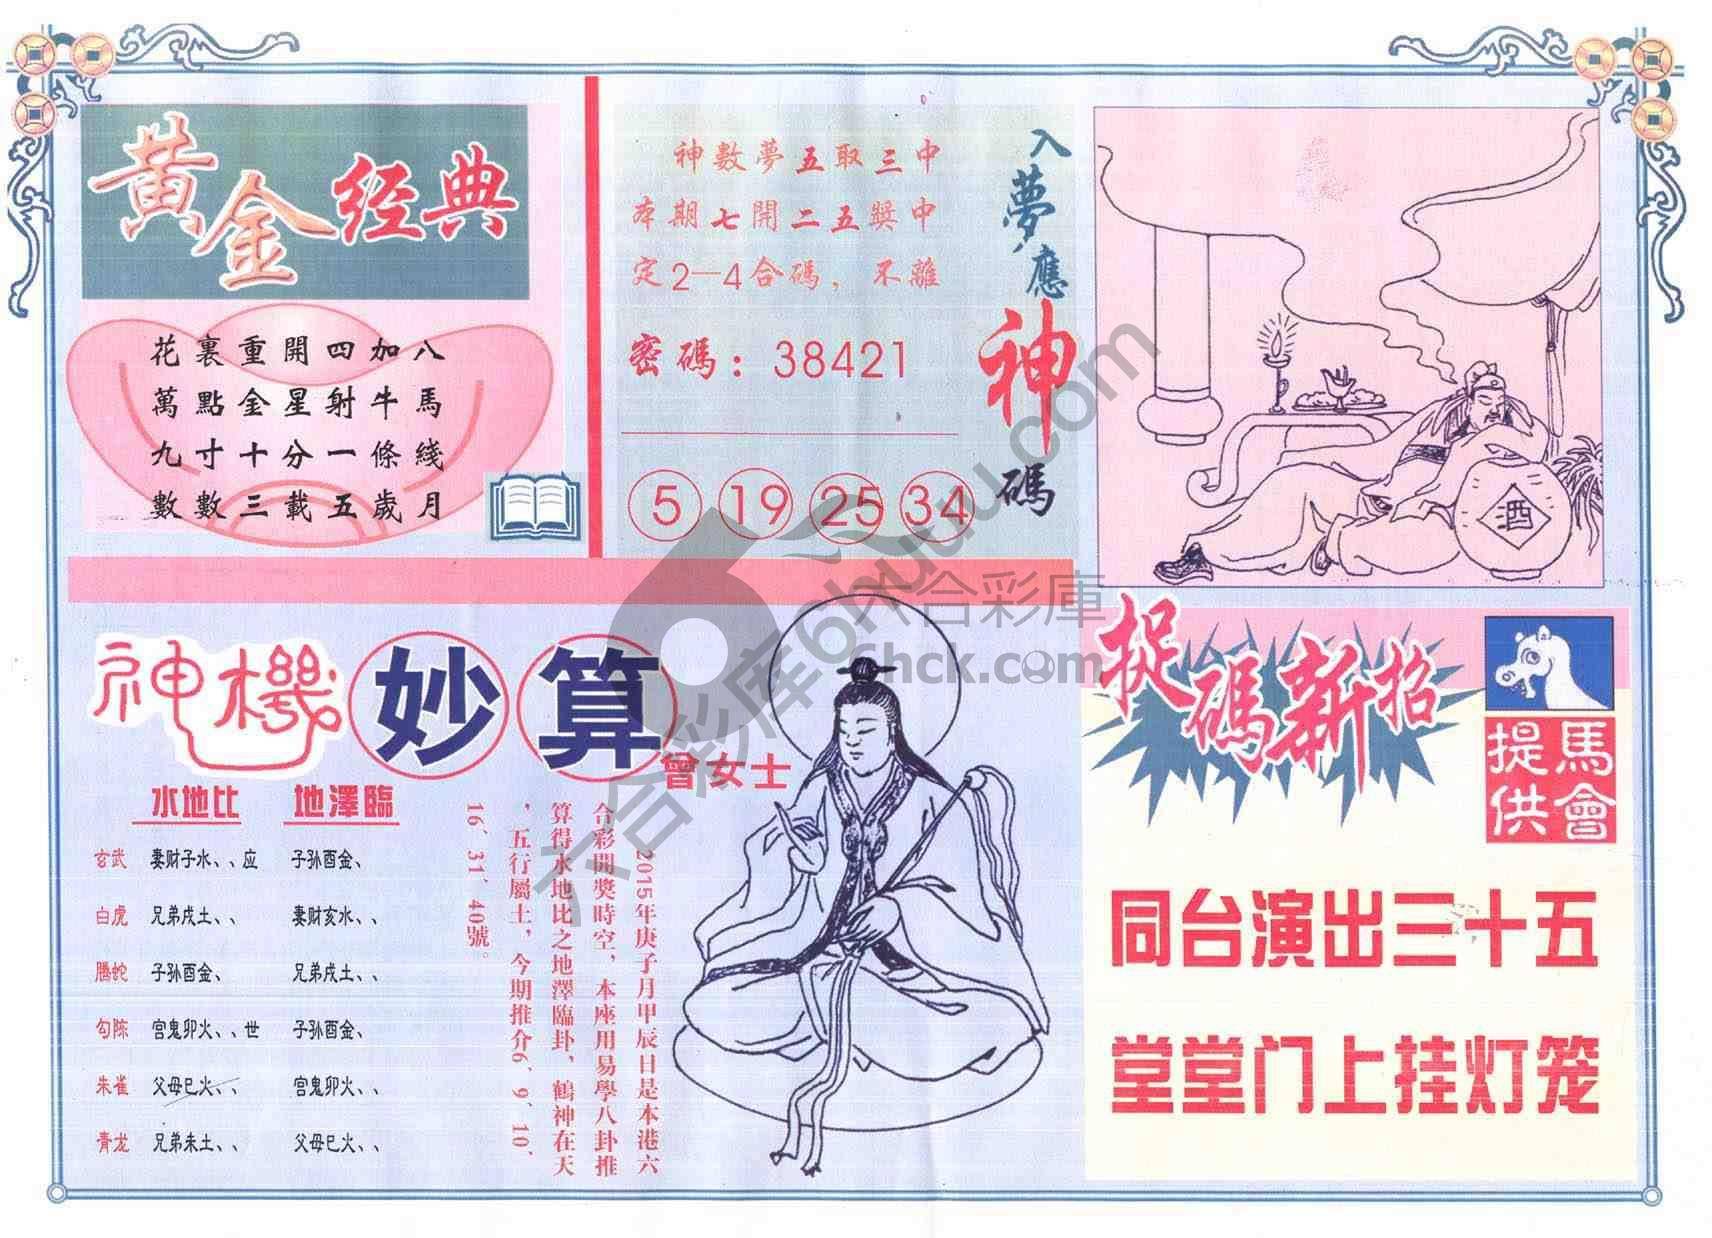 黄金经典
花裏重開四加八
萬點金星射牛馬
九寸十分一條綫
數數三載五歲月
神數夢五取三中
本期七開二五獎中
定2—4合碼，不離
密碼：38421
5 19 25 34
入夢應神碼
酒
神機妙算
曾女士
水地比 地澤臨
玄武 妻财子水、、应 子孙酉金、
白虎 兄弟戌土、、 妻财亥水、、
螣蛇 子孙酉金、 兄弟戌土、、
勾陈 官鬼卯火、、世 子孙酉金、
朱雀 父母巳火、、 官鬼卯火、、
青龙 兄弟未土、、 父母巳火、、
2015年庚子月甲辰日是本港六
合彩開獎時空，本座用易學八卦推
算得水地比之地澤臨卦，鶴神在天
，五行屬土，今期推介6、9、10、
16、31、40號。
捉碼新招
馬會
提供
同台演出三十五
堂堂门上挂灯笼
六合彩库6huu.com
六合彩庫
6hck.com